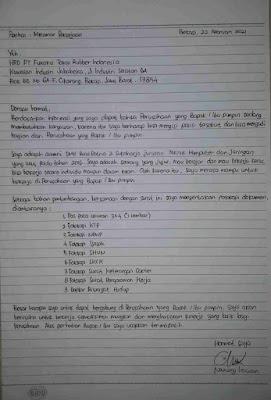 Perihal : Melamar Pekerjaan Bekasi, 22 Februari 2021
Yth.
HRD PT Fukoku Tokai Rubber Indonesia
Kawasan Industri Jababeka, Jl Industri Selatan 6A
Blok GG No 6A-F, Cikarang, Bekasi, Jawa Barat. 17854
Dengan hormat,
Berdasarkan informasi yang saya dapat, bahwa Perusahaan yang Bapak / Ibu pimpin sedang
membutuhkan karyawan, karena itu saya berharap bisa mengisi posisi tersebut dan bisa menjadi
bagian dari Perusahaan yang Bapak / Ibu pimpin.
Saya adalah alumni SMK Jurusan Teknik Komputer dan Jaringan
yang lulus pada tahun 2015. Saya adalah seorang yang jujur, mau belajar dan mau bekerja keras,
bisa bekerja secara individu maupun dalam team. Oleh karena itu, Saya merasa mampu untuk
bekerja di Perusahaan yang Bapak / Ibu pimpin.
Sebagai bahan pertimbangan, bersamaan dengan surat ini saya menyertakan dokumen,
diantaranya :
1. Pas Foto ukuran 3x4 (2 lembar)
2. Fotokopi KTP
3. Fotokopi NPWP
4. Fotokopi Ijazah
5. Fotokopi SHUN
6. Fotokopi SKCK
7. Fotokopi Surat Keterangan Dokter
8. Fotokopi Surat Pengalaman Kerja
9. Daftar Riwayat Hidup
Besar harapan saya untuk dapat bergabung di Perusahaan yang Bapak / Ibu pimpin. Saya akan
berusaha untuk bekerja semaksimal mungkin dan menghasilkan kinerja yang baik bagi
perusahaan. Atas perhatian Bapak / Ibu saya ucapkan terimakasih.
Hormat Saya